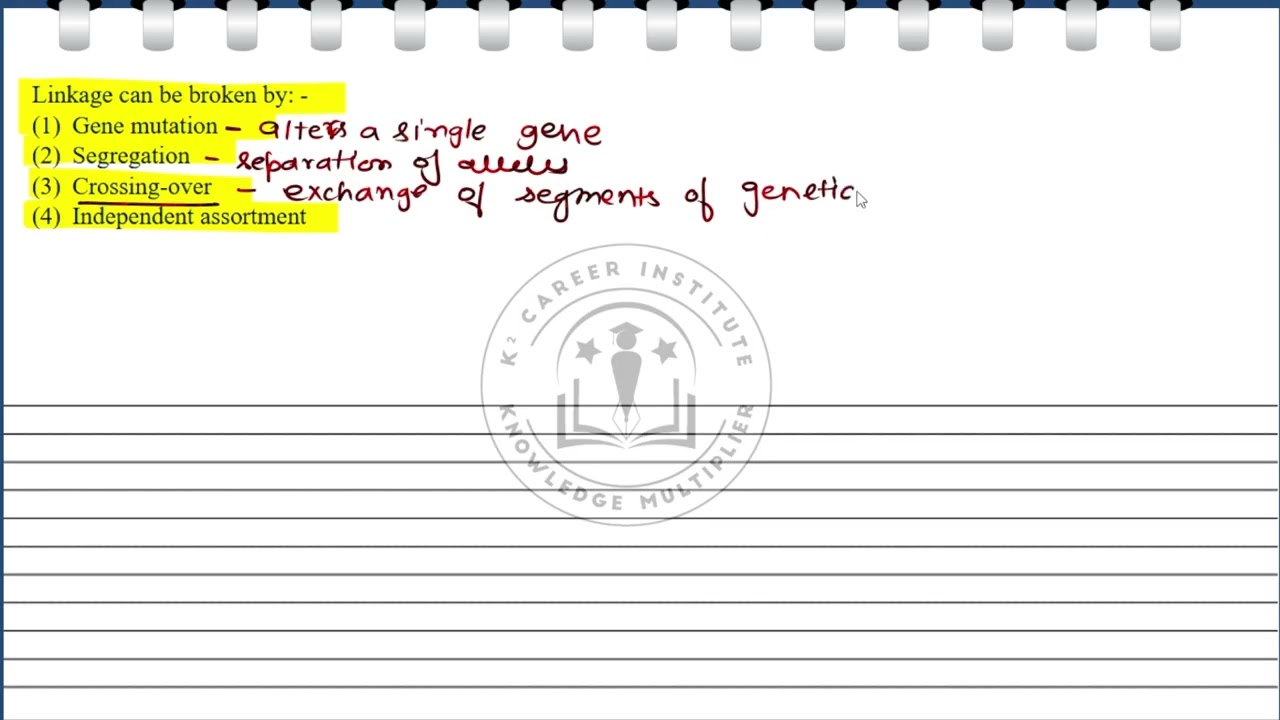 Linkage can be broken by: -
(1) Gene mutation – alters a single gene
(2) Segregation – separation of alleles
(3) Crossing-over – exchange of segments of genetic
(4) Independent assortment
K² CAREER INSTITUTE
KNOWLEDGE MULTIPLIER